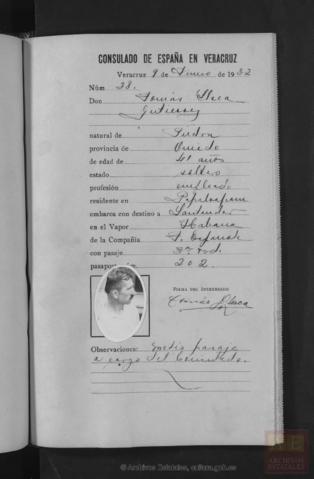 CONSULADO DE ESPAÑA EN VERACRUZ
Veracruz 9 de Junio de 1932
Núm 28.
Don Tomás Llaca
Gutierrez
natural de
provincia de Oviedo
de edad de 41 años
estado soltero
profesión empleado
residente en
embarca con destino a Santander
en el Vapor Habana
de la Compañía T. Española
con pasaje 3ª
pasaporte núm. 202.
FIRMA DEL INTERESADO
Tomás Llaca
Observaciones: medio pasaje
a cargo del Consulado.
© Archivos Estatales, cultura.gob.es
ARCHIVOS
ESTATALES